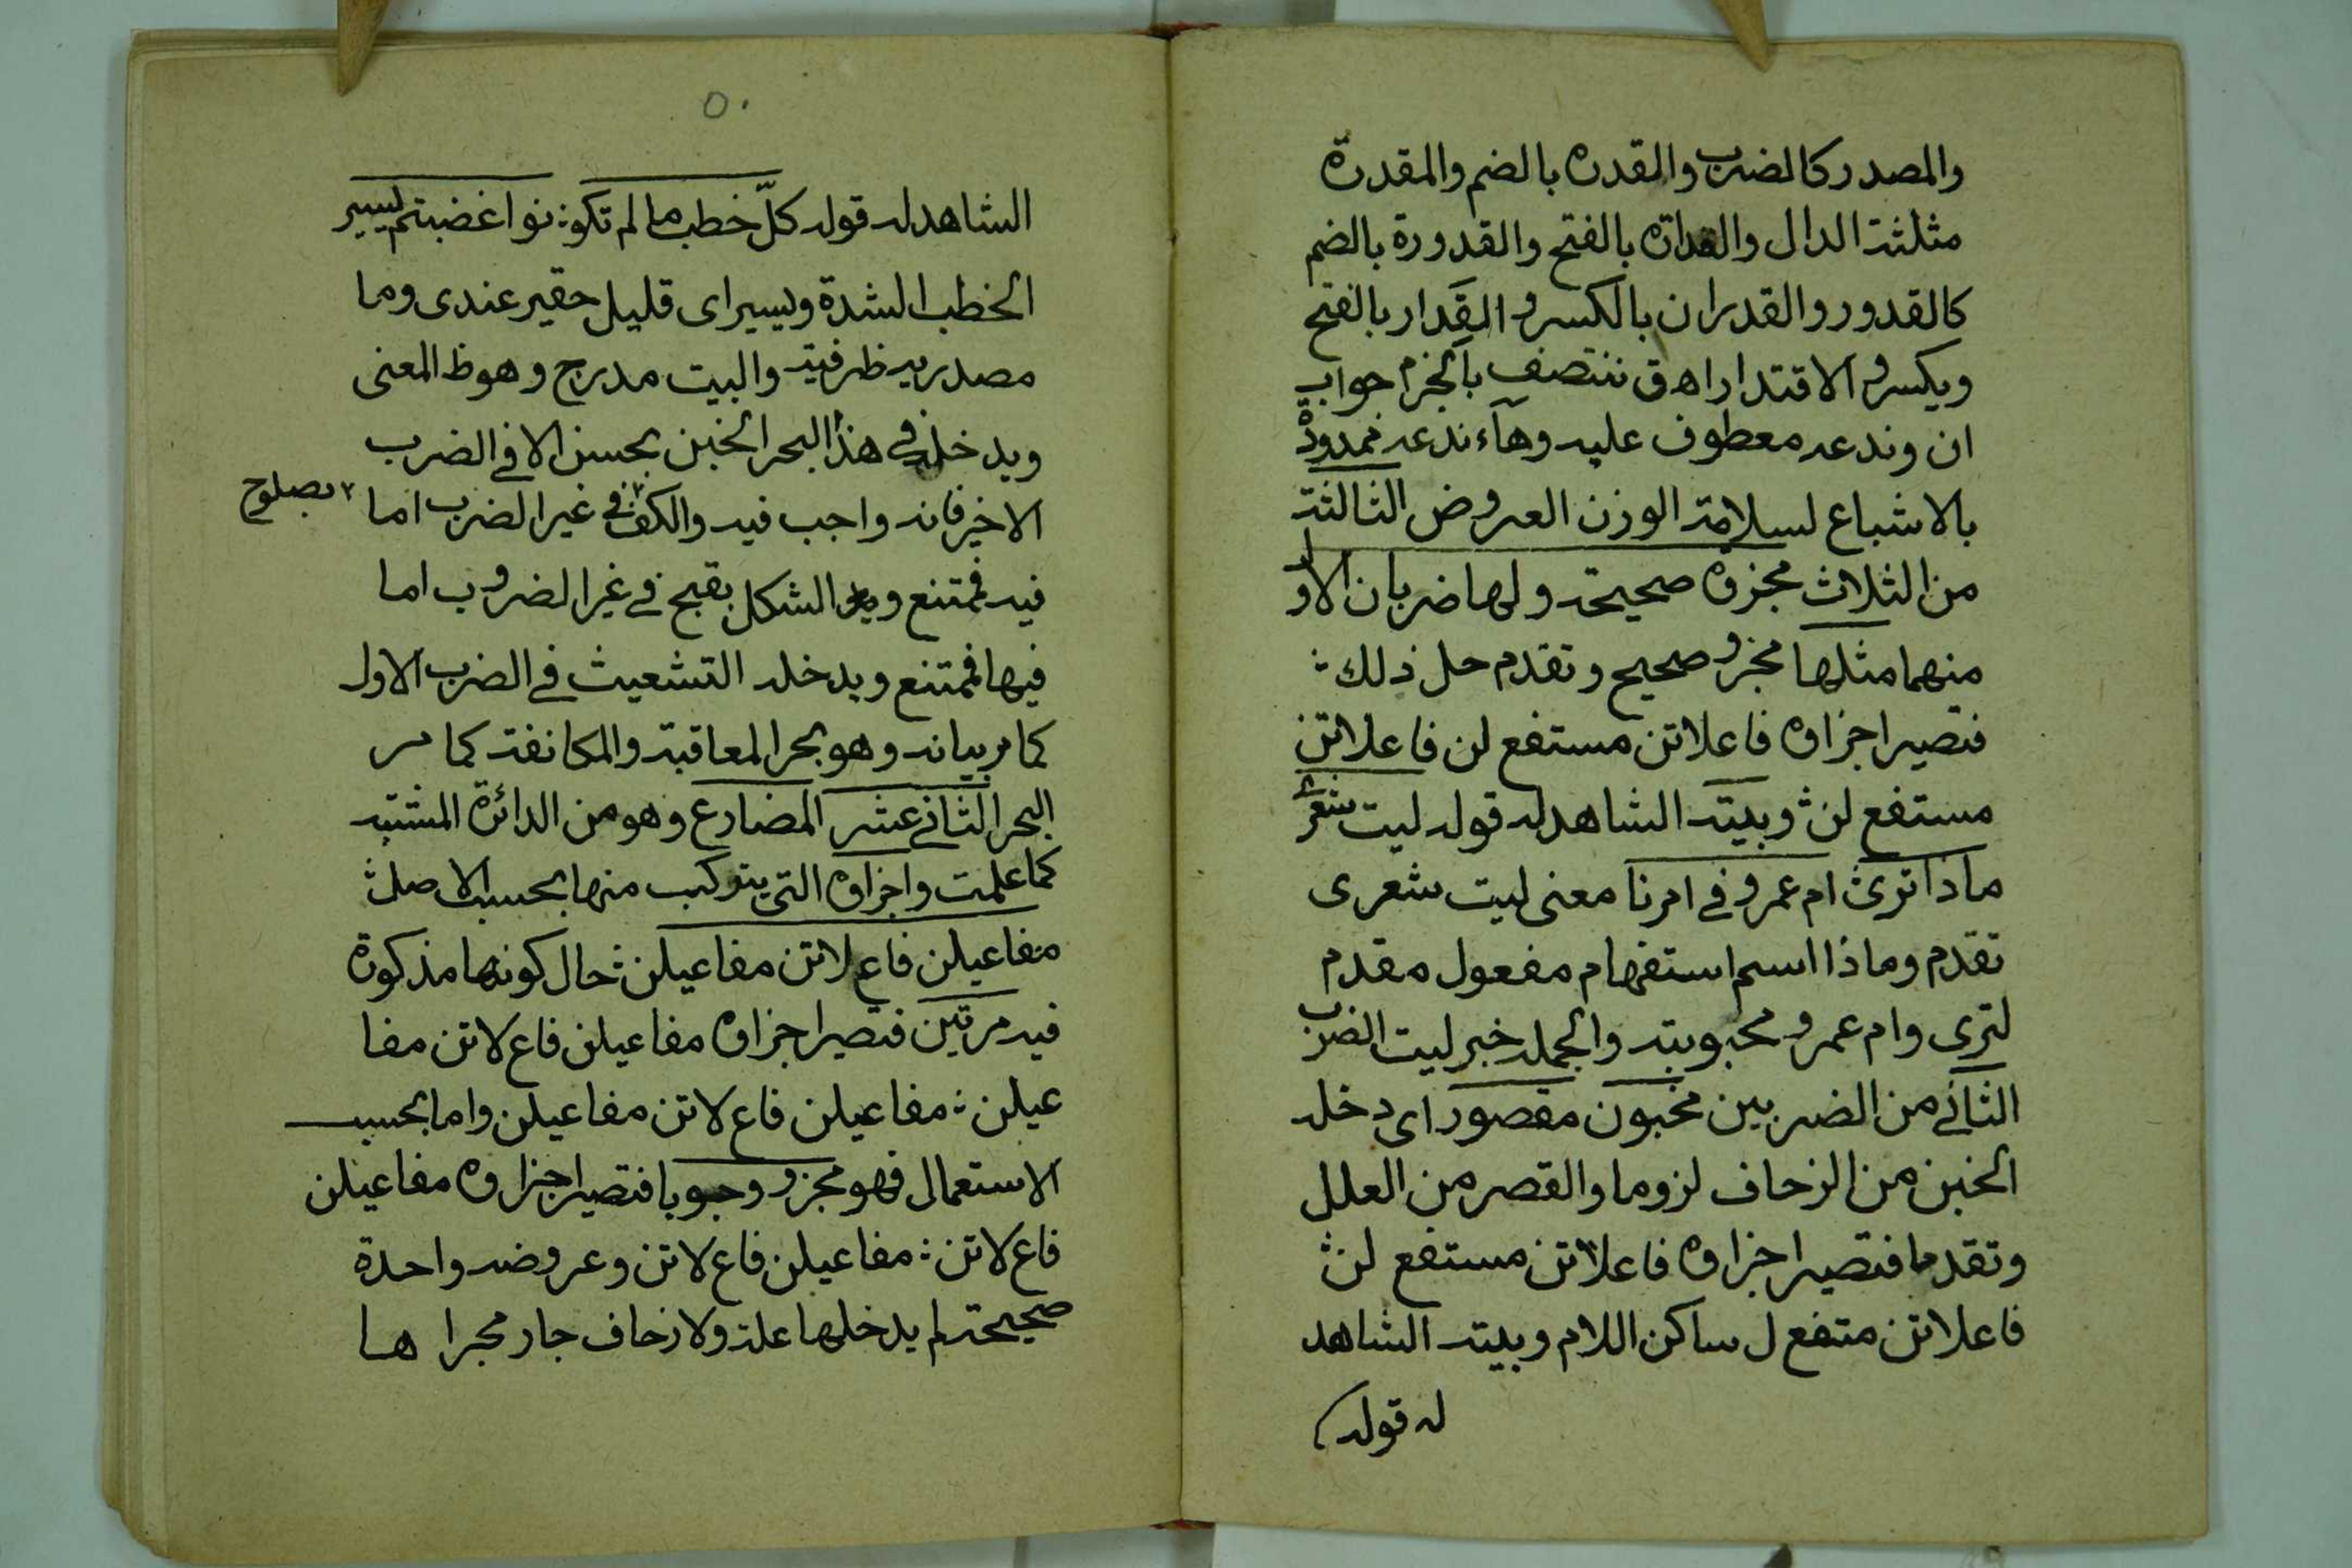 والمصدر كالضرب والمقدره بالضم والمقدرة
مثلثة الدال والقدارة بالفتح والقدورة بالضم
كالقدور والقدران بالكسر والقَدار بالفتح
ويكسر والاقتدار اه ق ننتصف بالجزم جواب
ان وندعه معطوف عليه وهآء ندعه ممدودة
بالاشباع لسلامة الوزن العروض الثالثة
من الثلاث مجزوة صحيحة ولها ضربان الاول
منهما مثلها مجزو صحيح وتقدم حل ذلك ؛
فتصير اجزاوه فاعلاتن مستفع لن فاعلاتن
مستفع لن ؛ وبيته الشاهد له قوله ليت شعرى
ماذا ترى ؛ ام عمرو في امرنا معنى ليت شعرى
تقدم وماذا اسم استفهام مفعول مقدم
لترى وام عمرو محبوبته والجمله خبر ليت الضرب
الثاني من الضربين مخبون مقصور اى دخله
الخبن من الزحاف لزوما والقصر من العلل
وتقدما فتصير اجزاوه فاعلاتن مستفع لن ؛
فاعلاتن متفع ل ساكن اللام وبيته الشاهد
له قوله
٥٠
الشاهد له قوله كلّ خطب ما لم تكو ؛ نوا غضبتم يسير
الخطب الشدة ويسير اى قليل حقير عندى وما
مصدريه ظرفية والبيت مدرج وهو ظ المعنى
ويدخله في هذا البحر الخبن بحسن الا في الضرب
الاخير فانه واجب فيه والكف ٢ في غير الضرب اما
٢ بصلوح
فيه فمتنع والشكل بقبح في غير الضروب اما
فيها فممتنع ويدخله التشعيث في الضرب الاول
كما مر بيانه وهو بحر المعاقبة والمكانفة كما مر
البحر الثاني عشر المضارع وهو من الدائرة المشتبه
كما علمت واجزاوه التى يتركب منها بحسب الاصل ؛
مفاعيلن فاع لاتن مفاعيلن ؛ حال كونها مذكورة
فيه مرتين فتصير اجزاوه مفاعيلن فاع لاتن مفا
عيلن ؛ مفاعيلن فاع لاتن مفاعيلن واما بحسب
الاستعمال فهو مجزو وجوبا فتصير اجزاوه مفاعيلن
فاع لاتن ؛ مفاعيلن فاع لاتن وعروضه واحدة
صحيحة لم يدخلها علة ولا زحاف جار مجراها